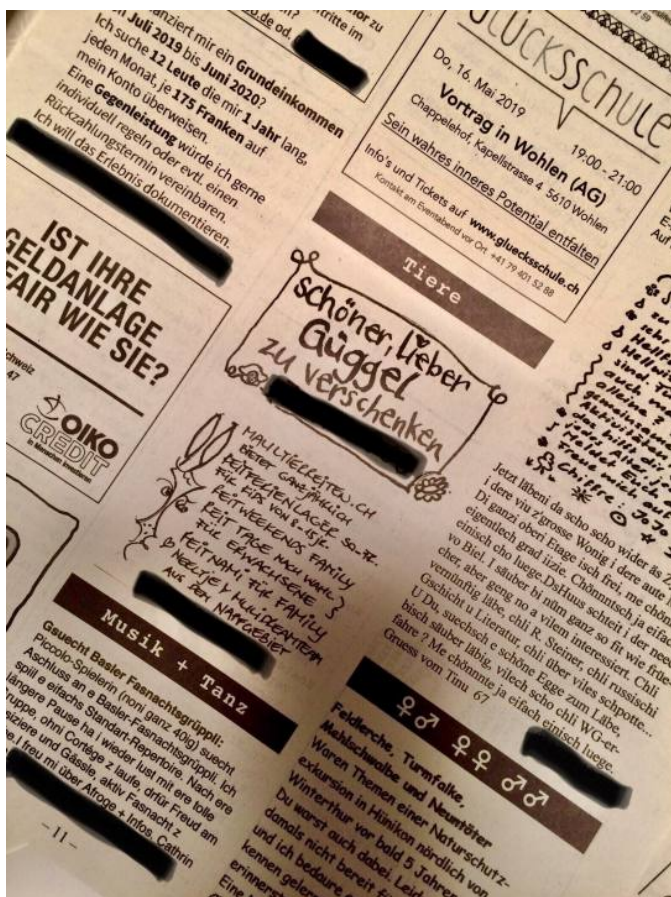 nanziert mir ein Grundeinkommen
n Juli 2019 bis Juni 2020?
Ich suche 12 Leute die mir 1 Jahr lang,
jeden Monat, je 175 Franken auf
mein Konto überweisen.
Eine Gegenleistung würde ich gerne
individuell regeln oder evtl. einen
Rückzahlungstermin vereinbaren.
Ich will das Erlebnis dokumentieren.
IST IHRE
GELDANLAGE
FAIR WIE SIE?
chweiz
47
OIKO
CREDIT
in Menschen investieren
GLÜCKSSCHULE
Do, 16. Mai 2019
19:00 - 21:00
Vortrag in Wohlen (AG)
Chappelehof, Kapellstrasse 4 5610 Wohlen
Sein wahres inneres Potential entfalten
Info's und Tickets auf www.gluecksschule.ch
Kontakt am Eventabend vor Ort +41 79 401 52 88
Tiere
schöner, lieber
Güggel
zu verschenken
MAULTIERREITEN.CH
BIETET GANZJÄHRLICH
REITFERIENLAGER SO-FR.
FÜR KIDS VON 8-15 J.
REITWEEKENDS FAMILY
REIT TAGE NACH WAHL
FÜR ERWACHSENE
REIT NAMI FÜR FAMILY
NEELTJE & MULIDREAMTEAM
AUS DEM NAPFGEBIET
Musik + Tanz
Gsuecht Basler Fasnachtsgrüppli:
Piccolo-Spielerin (noni ganz 40ig) suecht
Aschluss an e Basler-Fasnachtsgrüppli. Ich
spiil e eifachs Standart-Repertoire. Nach ere
längere Pause ha i wieder lust mit ere tolle
ruppe, ohni Cortège z laufe, drfür Freud am
siziere und Gässle, aktiv Fasnacht z
freu mi über Afroge + Infos. Cathrin
- 11 -
Jetzt läbeni da scho scho wider äs
i dere viu z'grosse Wonig i dere aute
Di ganzi oberi Etage isch frei, me chö
eigentlech grad iizie. Chönnntsch, ja eifa
einisch cho luege. DsHuus schteit i der nech
vo Biel. I säuber bi nüm ganz so fit wie früe
cher, aber geng no a vilem interessiert. Chli
vernünftig läbe, chli R. Steiner, chli russischi
Gschicht u Literatur, chli über viles schpotte...
U Du, suechsch e schöne Egge zum Läbe,
bisch säuber läbig, vilech scho chli WG-er-
fahre ? Me chönnte ja eifach einisch luege.
Gruess vom Tinu 67
♀♂ ♀♀ ♂♂
Feldlerche, Turmfalke,
Mehlschwalbe und Neuntöter
Waren Themen einer Naturschutz-
exkursion in Hünikon nördlich von
Winterthur vor bald 5 Jahren
Du warst auch dabei. Leid
damals nicht bereit
und ich bedaure
kennen gelern
erinnerst